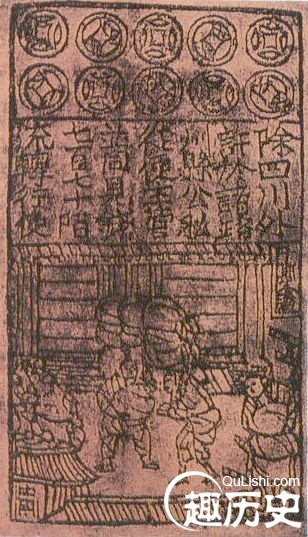 除四川外
許於諸路
州縣公私
從便主管
並同見錢
七百七十陌
流轉行使
QuLishi.com
趣历史